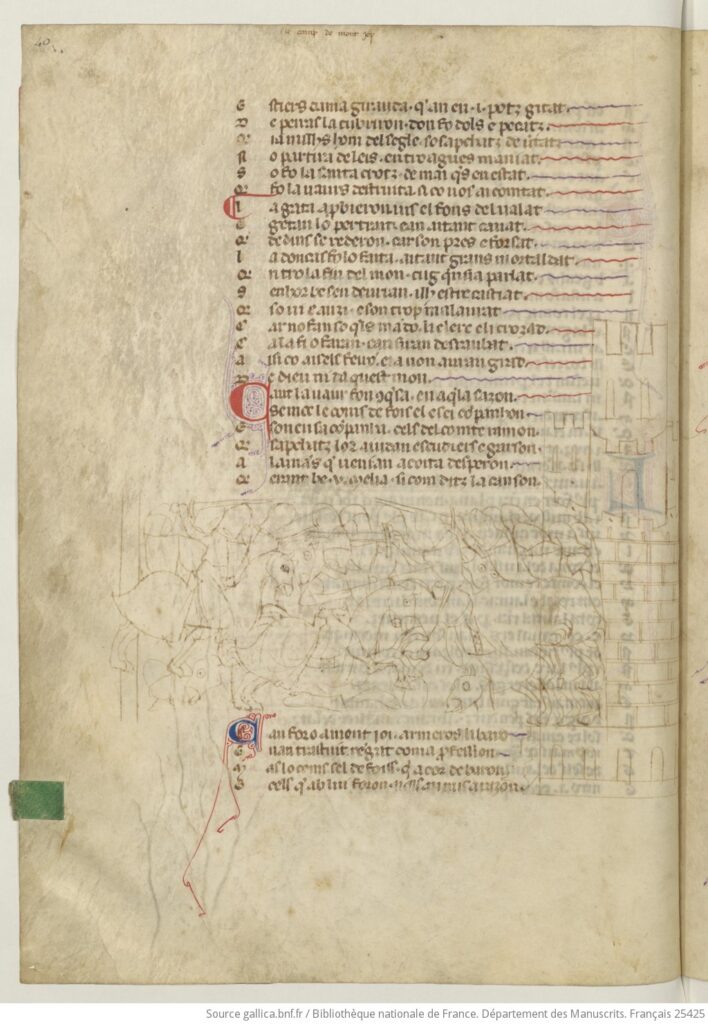 40
le camp de mont joy
E stiers dama girauda · q'an en · i · potz gitat
D e peiras la cubriron · don fo dols e pecatz
Q ia nulhs hom del segle · so sapchatz de v'tat
N o partira de leis · entro agues maniat
S o fo la santa crotz · de mai q's en estat
Q fo la vaurs destruita · si co vos ai comtat
L a gata apbieron · ius el fons del valat
E getan lo pertrait · e an aitant cavat
Q' dedins se rederon · car son pres e forsat
L adoncas fo lo faita · aitant grans mortaldat
Q'ntro la fin del mon · cug q'n sia parlat
S enhor be sen devrian · ilh estre castiat
Q' so vi e auzi · e son trop malaurat
C ar no fan so q'ls mado · li clerc e li crozad
C a la fi o faran · can siran desraubat
A isi co aisels feiro · e ia non auran grad
D e dieu ni da quest mon
Cant la vaur fon 9q'sa · en aq'la sazon
Se mes le coms de fois el e sei copanhon
E son en sa copanha · cels del comte ramon
Q' sapchatz lor aiudan escudiers e garson
A lamas q' venian a coita desperon
Q' erant be · v · melia · si com ditz la canson
Can foro a mont ioi · armeros li baro
E van trastuit regat com a p'fession
M as lo coms sel de foiss · q'a cor de baron
E cels q' ab lui foron ·
Source gallica.bnf.fr / Bibliothèque nationale de France. Département des Manuscrits. Français 25425